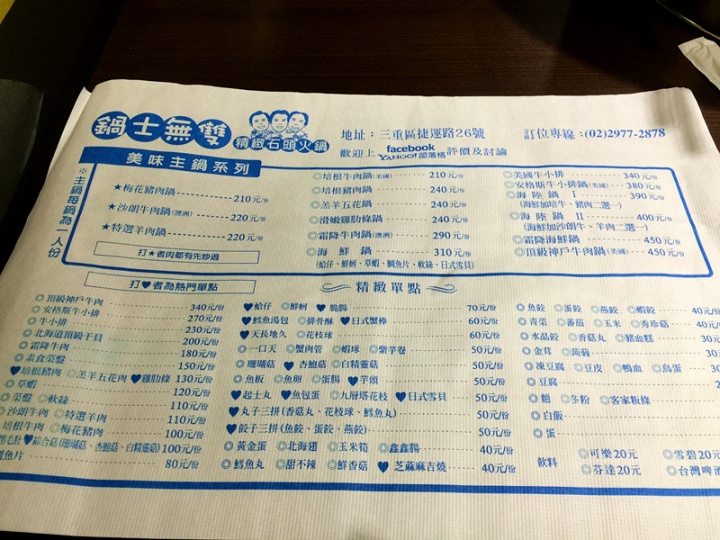 鍋士無雙
精緻石頭火鍋
地址：三重區捷運路26號
訂位專線：(02)2977-2878
歡迎上 facebook YAHOO!部落格 評價及討論
※主鍋每鍋為一人份
美味主鍋系列
★梅花豬肉鍋 210元/份
★沙朗牛肉鍋(澳洲) 220元/份
★特選羊肉鍋 220元/份
打★者肉都有先炒過
◎培根牛肉鍋(美國) 210元/份
◎培根豬肉鍋 240元/份
◎羔羊五花鍋 240元/份
◎滑嫩雞肋條鍋 240元/份
◎霜降牛肉鍋(澳洲) 290元/份
◎海鮮鍋 310元/份
(蛤仔、鮮蚵、草蝦、鯛魚片、軟絲、日式雪貝)
◎美國牛小排 340元/份
◎安格斯牛小排鍋(美國) 380元/份
◎海陸鍋 I 390元/份
(海鮮加培牛、豬肉二選一)
◎海陸鍋 II 400元/份
(海鮮加沙朗牛、羊肉二選一)
◎霜降海鮮鍋 450元/份
◎頂級神戶牛肉鍋(美國) 450元/份
打♥者為熱門單點
精緻單點
◎頂級神戶牛肉 340元/份
◎安格斯牛小排 270元/份
◎牛小排 230元/份
◎北海道頂級干貝 200元/份
◎霜降牛肉 180元/份
◎素食菜盤 150元/份
♥培根豬肉 ◎羔羊五花肉 ♥雞肋條 130元/份
◎草蝦 120元/份
◎菜盤 ◎軟絲 110元/份
沙朗牛肉 ◎特選羊肉 110元/份
培根牛肉 ◎梅花豬肉 100元/份
黑毛肚 ♥綜合菇(珊瑚菇、杏鮑菇、白精靈菇) 100元/份
魚片 80元/份
♥蛤仔 ◎鮮蚵 ♥脆腸 70元/份
♥鱈魚湯包 ◎排骨酥 ♥日式蟹棒 60元/份
♥天長地久 ◎花枝球 60元/份
◎一口天 ◎蟹肉管 ◎蝦球 ◎紫芋卷 50元/份
◎珊瑚菇 ♥杏鮑菇 ◎白精靈菇 50元/份
◎魚板 ◎魚卵 ◎蛋腸 ♥芋頭 50元/份
♥起士丸 ♥魚包蛋 ◎九層塔花枝 ♥日式雪貝 50元/份
♥丸子三拼(香菇丸、花枝球、鱈魚丸) 50元/份
♥餃子三拼(魚餃、蛋餃、燕餃) 50元/份
◎黃金蛋 ◎北海翅 ◎玉米筍 ◎鑫鑫腸 40元/份
◎鱈魚丸 ◎甜不辣 ◎鮮香菇 ♥芝麻麻吉燒 40元/份
◎魚餃 ◎蛋餃 ◎燕餃 ◎蝦餃 40元/份
◎青菜 ◎番茄 ◎玉米 ◎秀珍菇 40元/
◎水晶餃 ◎香菇丸 ◎豬血糕 30元
◎金茸 ◎蒟蒻 30
◎凍豆腐 ◎豆皮 ◎鴨血 ◎鳥蛋 30
◎豆腐 2
◎麵 ◎冬粉 ◎客家粄條
◎白飯
◎蛋
飲料 ◎可樂20元 ◎雪碧20元
◎芬達20元 ◎台灣啤酒